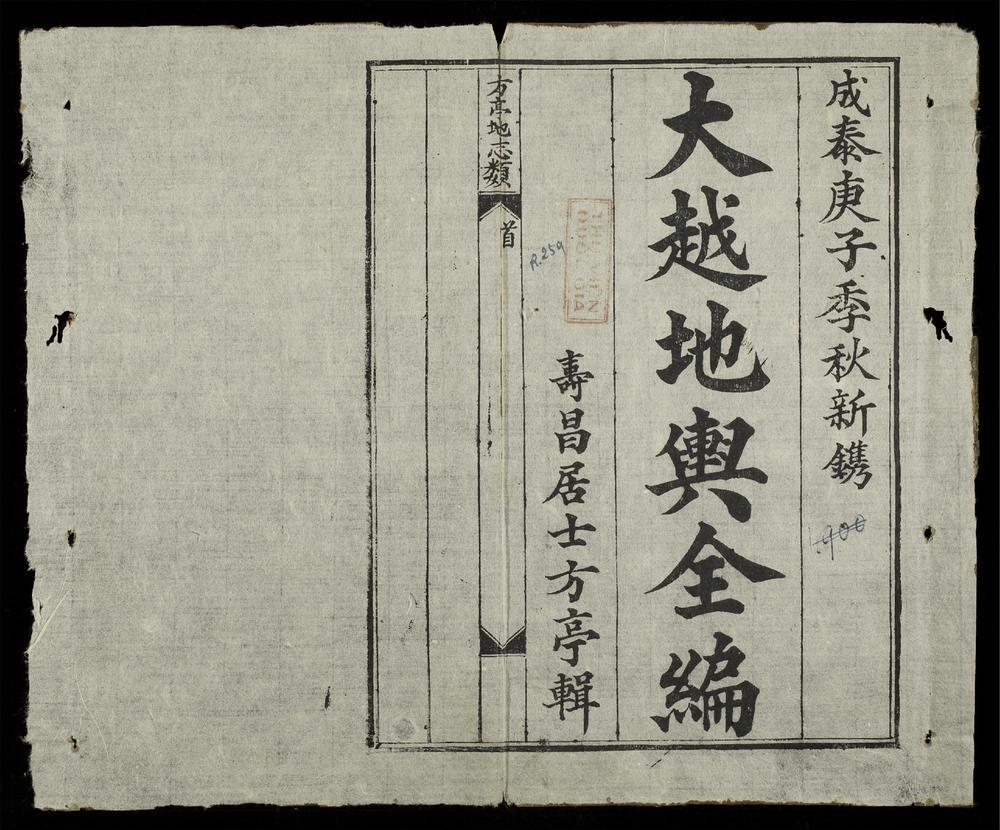 成泰庚子季秋新鐫
大越地輿全編
壽昌居士方亭輯
R.259
1.900
方亭地志類
首